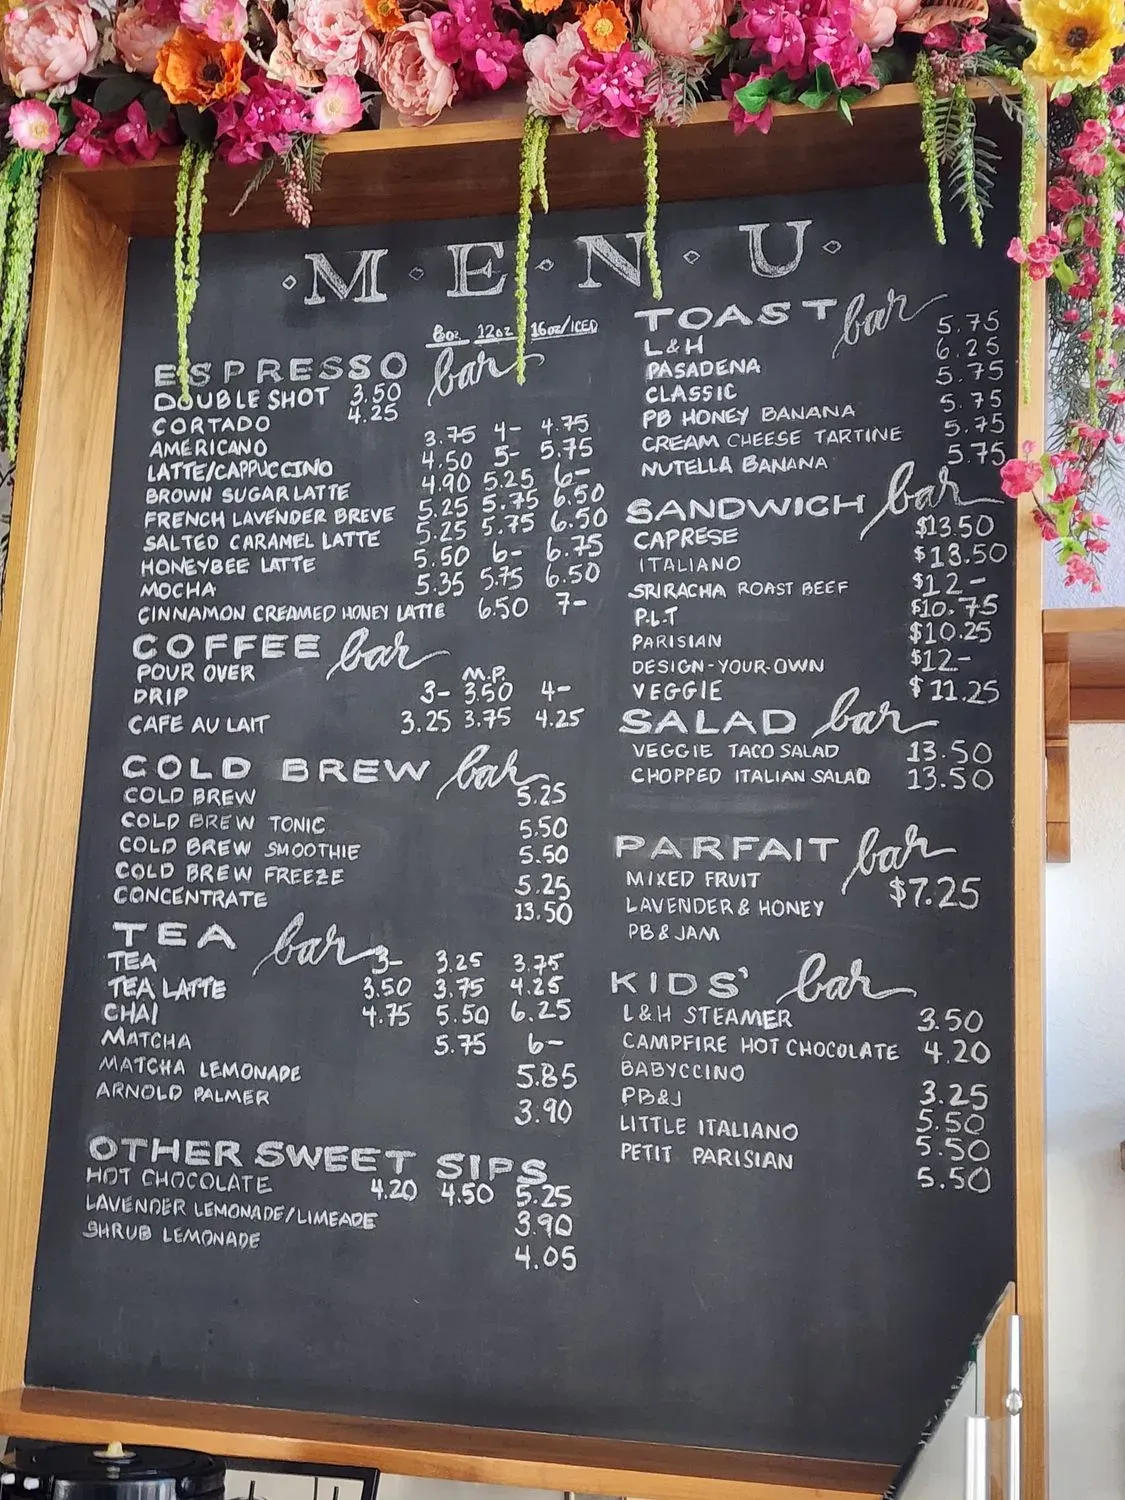 MENU
8oz 12oz 16oz/ICED
ESPRESSO bar
DOUBLE SHOT 3.50
CORTADO 4.25
AMERICANO 3.75 4- 4.75
LATTE/CAPPUCCINO 4.50 5- 5.75
BROWN SUGAR LATTE 4.90 5.25 6-
FRENCH LAVENDER BREVE 5.25 5.75 6.50
SALTED CARAMEL LATTE 5.25 5.75 6.50
HONEYBEE LATTE 5.50 6- 6.75
MOCHA 5.35 5.75 6.50
CINNAMON CREAMED HONEY LATTE 6.50 7-
COFFEE bar
POUR OVER M.P.
DRIP 3- 3.50 4-
CAFE AU LAIT 3.25 3.75 4.25
COLD BREW bar
COLD BREW 5.25
COLD BREW TONIC 5.50
COLD BREW SMOOTHIE 5.50
COLD BREW FREEZE 5.25
CONCENTRATE 13.50
TEA bar
TEA 3- 3.25 3.75
TEA LATTE 3.50 3.75 4.25
CHAI 4.75 5.50 6.25
MATCHA 5.75 6-
MATCHA LEMONADE 5.85
ARNOLD PALMER 3.90
OTHER SWEET SIPS
HOT CHOCOLATE 4.20 4.50 5.25
LAVENDER LEMONADE/LIMEADE 3.90
SHRUB LEMONADE 4.05
TOAST bar
L&H 5.75
PASADENA 6.25
CLASSIC 5.75
PB HONEY BANANA 5.75
CREAM CHEESE TARTINE 5.75
NUTELLA BANANA 5.75
SANDWICH bar
CAPRESE $13.50
ITALIANO $13.50
SRIRACHA ROAST BEEF $12-
P.L.T $10.75
PARISIAN $10.25
DESIGN-YOUR-OWN $12-
VEGGIE $11.25
SALAD bar
VEGGIE TACO SALAD 13.50
CHOPPED ITALIAN SALAD 13.50
PARFAIT bar
MIXED FRUIT $7.25
LAVENDER & HONEY
PB & JAM
KIDS' bar
L&H STEAMER 3.50
CAMPFIRE HOT CHOCOLATE 4.20
BABYCCINO 3.25
PB&J 5.50
LITTLE ITALIANO 5.50
PETIT PARISIAN 5.50